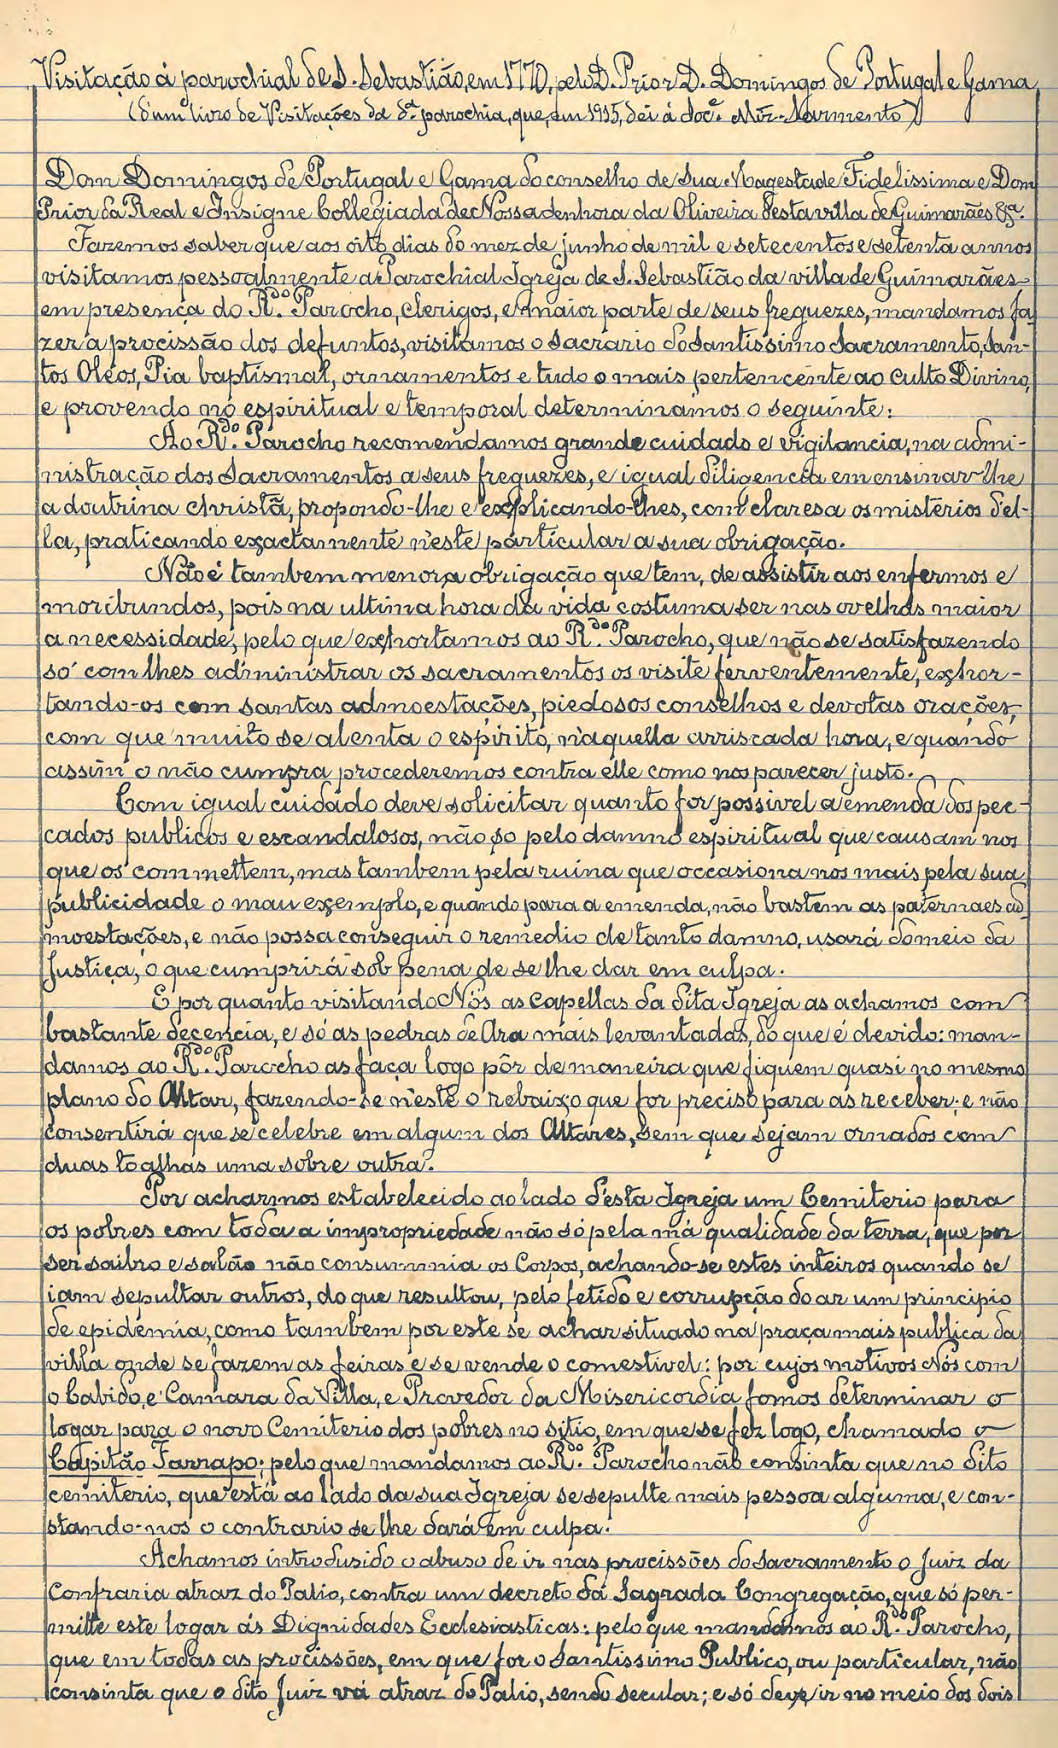 Visitação á parochial de S. Sebastião, em 1770, pelo D. Prior D. Domingos de Portugal e Gama
(d'um livro de Visitações da d.ª parochia, que, em 1915, dei á Soc.e Mar.-Sarmento)
Dom Domingos de Portugal e Gama do conselho de Sua Magestade Fidelissima e Dom
Prior da Real e Insigne Collegiada de Nossa Senhora da Oliveira desta villa de Guimarães &ª.
Fazemos saber que aos oito dias do mez de junho de mil e setecentos e setenta annos
visitamos pessoalmente a Parochial Igreja de S. Sebastião da villa de Guimarães
em presença do R.do Parocho, clerigos, e maior parte de seus freguezes, mandamos fa-
zer a procissão dos defuntos, visitamos o Sacrario do Santissimo Sacramento, San-
tos Oleos, Pia baptismal, ornamentos e tudo o mais pertencente ao Culto Divino,
e provendo no espiritual e temporal determinámos o seguinte:
Ao R.do Parocho recomendamos grande cuidado e vigilancia, na admi-
nistração dos Sacramentos a seus freguezes, e igual diligencia em ensinar-lhe
a doutrina christã, propondo-lhe e explicando-lhes, com claresa os misterios d'el-
la, praticando exactamente n'este particular a sua obrigação.
Não é tambem menor a obrigação que tem, de assistir aos enfermos e
moribundos, pois na ultima hora da vida costuma ser nas ovelhas maior
a necessidade, pelo que exhortamos ao R.do Parocho, que não se satisfazendo
só com lhes administrar os sacramentos os visite ferventemente, exhor-
tando-os com santas admoestações, piedosos conselhos e devotas orações,
com que muito se alenta o espirito, n'aquella arriscada hora, e quando
assim o não cumpra procederemos contra elle como nos parecer justo.
Com igual cuidado deve solicitar quanto for possivel a emenda dos pec-
cados publicos e escandalosos, não so pelo damno espiritual que causam nos
que os commettem, mas tambem pela ruina que occasiona nos mais pela sua
publicidade o mau exemplo, e quando para a emenda, não bastem as paternaes ad-
moestações, e não possa conseguir o remedio de tanto damno, usará do meio da
Justiça, o que cumprirá sob pena de se lhe dar em culpa.
E por quanto visitando Nós as Capellas da dita Igreja as achamos com
bastante decencia, e só as pedras de Ara mais levantadas, do que é devido: man-
damos ao R.do Parocho as faça logo pôr de maneira que fiquem quasi no mesmo
plano do Altar, fazendo-se n'este o rebaixo que for preciso para as receber; e não
consentirá que se celebre em algum dos Altares, sem que sejam ornados com
duas toalhas uma sobre outra.
Por acharmos estabelecido ao lado d'esta Igreja um Cemiterio para
os pobres com toda a impropriedade não só pela má qualidade da terra, que por
ser saibro e salão não consummia os Corpos, achando-se estes inteiros quando se
iam sepultar outros, do que resultou, pelo fetido e corrupção do ar um principio
de epidemia, como tambem por este se achar situado na praça mais publica da
villa onde se fazem as feiras e se vende o comestivel: por cujos motivos Nós com
o Cabido, e Camara da Villa, e Provedor da Misericordia fomos determinar o
logar para o novo Cemiterio dos pobres no sitio, em que se fez logo, chamado o
Capitão Farrapo; pelo que mandamos ao R.do Parocho não consinta que no dito
cemiterio, que está ao lado da sua Igreja se sepulte mais pessoa alguma, e con-
stando-nos o contrario se lhe dará em culpa.
Achamos introdusido o abuso de ir nas procissões do Sacramento o Juiz da
Confraria atraz do Palio, contra um decreto da Sagrada Congregação, que só per-
mitte este logar ás Dignidades Ecclesiasticas: pelo que mandamos ao R.do Parocho,
que em todas as procissões, em que for o Santissimo Publico, ou particular, não
consinta que o dito Juiz vá atraz do Palio, sendo secular; e só deve ir no meio dos dois